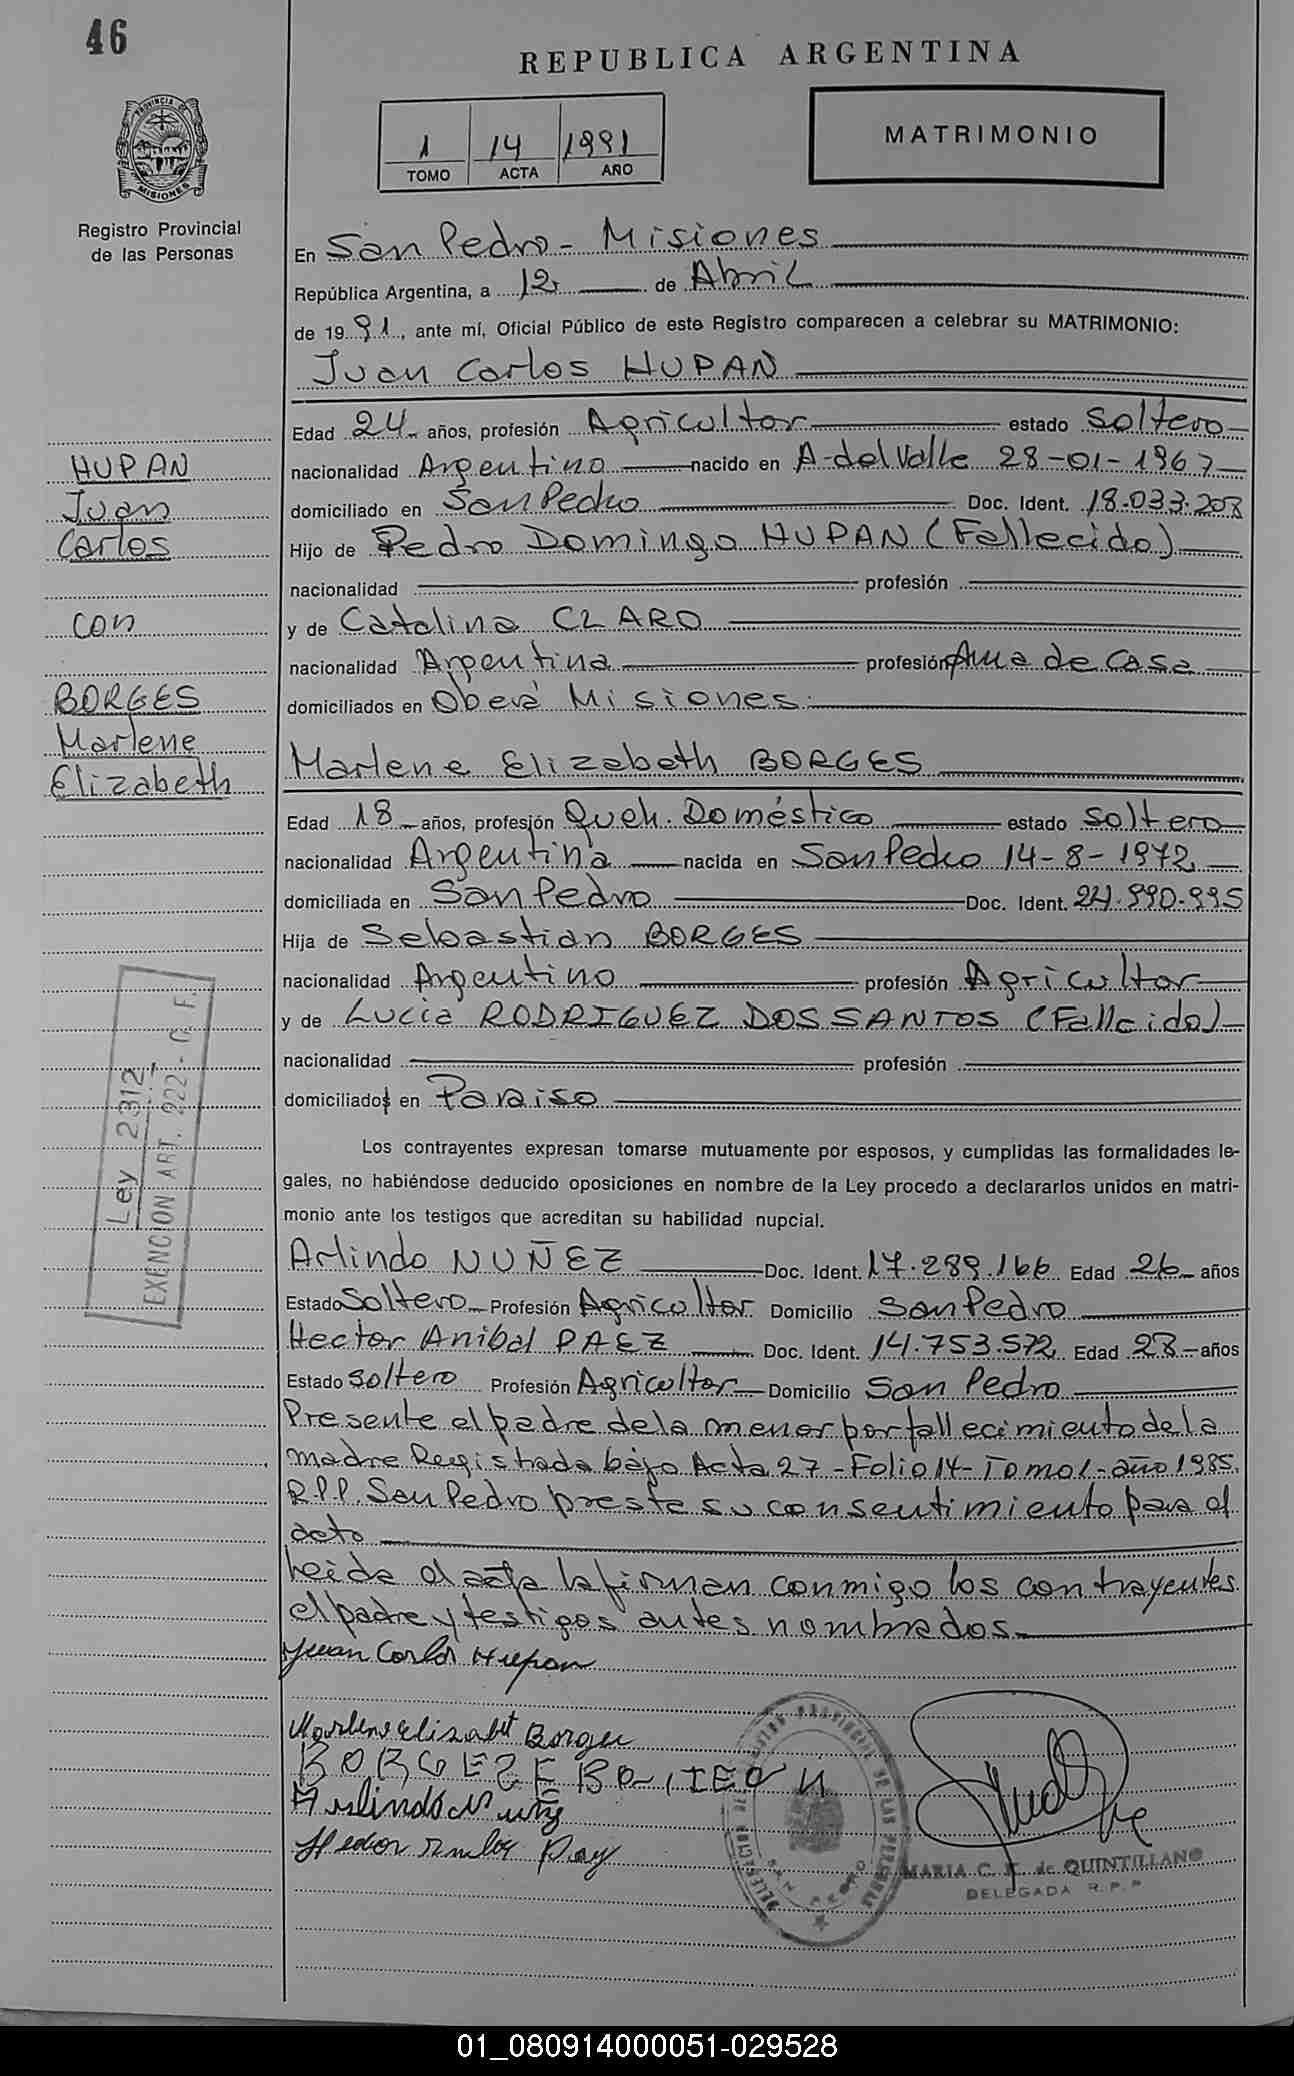 46
REPUBLICA ARGENTINA
1 14 1991
TOMO ACTA AÑO
MATRIMONIO
PROVINCIA DE
MISIONES
Registro Provincial
de las Personas
En San Pedro - Misiones
República Argentina, a 12 de Abril
de 1991, ante mí, Oficial Público de este Registro comparecen a celebrar su MATRIMONIO:
Juan Carlos HUPAN
Edad 24 años, profesión Agricultor estado soltero
nacionalidad Argentino nacido en A. del Valle 28-01-1967
domiciliado en San Pedro Doc. Ident. 18.033.208
Hijo de Pedro Domingo HUPAN (Fallecido)
nacionalidad profesión
y de Catalina CLARO
nacionalidad Argentina profesión Ama de Casa
domiciliados en Oberá Misiones
Marlene Elizabeth BORGES
Edad 18 años, profesión Queh. Doméstico estado soltero
nacionalidad Argentina nacida en San Pedro 14-8-1972
domiciliada en San Pedro Doc. Ident. 24.990.995
Hija de Sebastian BORGES
nacionalidad Argentino profesión Agricultor
y de Lucia RODRIGUEZ DOS SANTOS (Fallcido)
nacionalidad profesión
domiciliados en Paraiso
Los contrayentes expresan tomarse mutuamente por esposos, y cumplidas las formalidades le-
gales, no habiéndose deducido oposiciones en nombre de la Ley procedo a declararlos unidos en matri-
monio ante los testigos que acreditan su habilidad nupcial.
Arlindo NUÑEZ Doc. Ident. 17.289.166 Edad 26 años
Estado Soltero Profesión Agricultor Domicilio San Pedro
Hector Anibal PAEZ Doc. Ident. 14.753.572 Edad 28 años
Estado soltero Profesión Agricultor Domicilio San Pedro
Presente el padre de la menor por fallecimiento de la
madre Registrada bajo Acta 27 - Folio 14 - Tomo 1 - año 1985.
R.P.P. San Pedro presta su consentimiento para el
acto
Leida el acta la firman conmigo los contrayentes
el padre y testigos antes nombrados
Juan Carlos Hupan
Marlene elisabet Borges
BORGES
Arlindo Nuñez
MARIA C. de QUINTILLAN
DELEGADA R.P.P.
DELEGACION DE REGISTRO PROVINCIAL DE LAS PERSONAS
SAN PEDRO
HUPAN
Juan
Carlos
con
BORGES
Marlene
Elizabeth
Ley 2312
EXENCION ART. 922 - C. F.
01_080914000051-029528